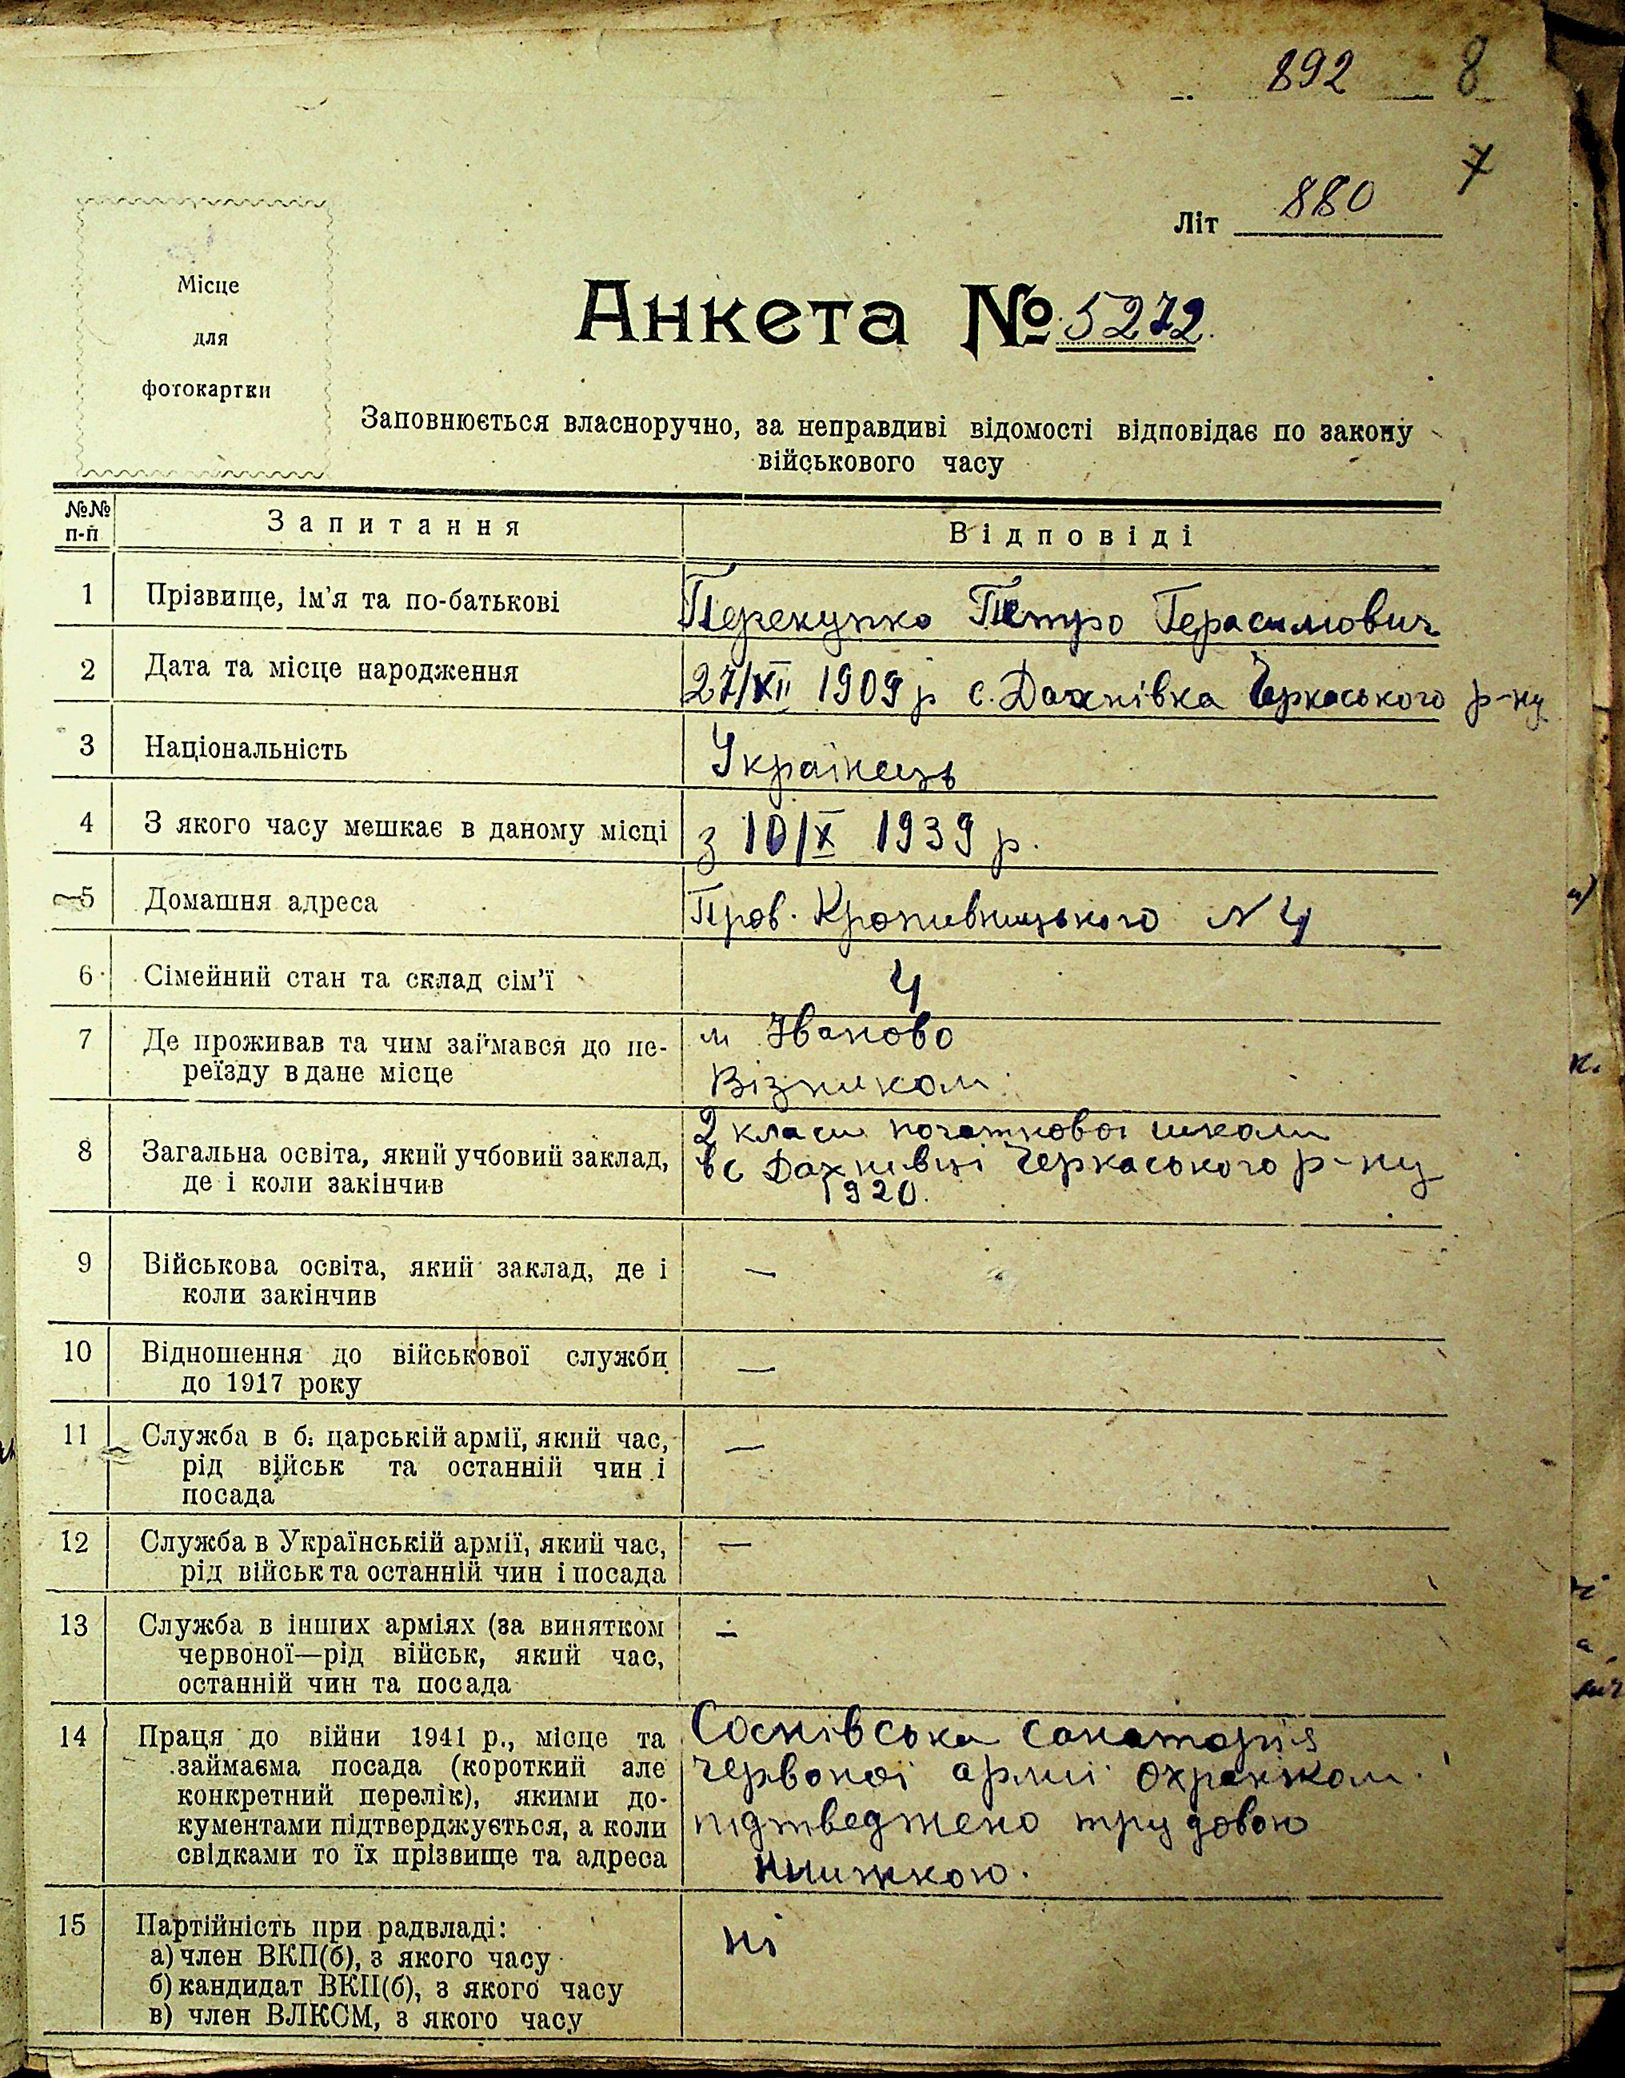 892 8
7
Літ 880
Місце
для
фотокартки
Анкета № 5272
Заповнюється власноручно, за неправдиві відомості відповідає по закону
військового часу
№№
п-п
Запитання
Відповіді
1 Прізвище, ім'я та по-батькові
Перекупко Петро Герасимович
2 Дата та місце народження
27/XII 1909 р с. Дахнівка Черкаського р-ну
3 Національність
Українець
4 З якого часу мешкає в даному місці
з 10/X 1939 р.
5 Домашня адреса
Пров. Кропивницького N 4
6 Сімейний стан та склад сім'ї
4
7 Де проживав та чим займався до пе-
реїзду в дане місце
м Іваново
Візником.
8 Загальна освіта, який учбовий заклад,
де і коли закінчив
2 класи початкової школи
в с Дахнівці Черкаського р-ну
1920.
9 Військова освіта, який заклад, де і
коли закінчив
—
10 Відношення до військової служби
до 1917 року
—
11 Служба в б. царській армії, який час,
рід військ та останній чин і
посада
—
12 Служба в Українській армії, який час,
рід військ та останній чин і посада
—
13 Служба в інших арміях (за винятком
червоної—рід військ, який час,
останній чин та посада
—
14 Праця до війни 1941 р., місце та
займаєма посада (короткий але
конкретний перелік), якими до-
кументами підтверджується, а коли
свідками то їх прізвище та адреса
Соснівська санаторія
червоної армії охранком.
підтведжено трудовою
книжкою.
15 Партійність при радвладі:
а) член ВКП(б), з якого часу
б) кандидат ВКП(б), з якого часу
в) член ВЛКСМ, з якого часу
ні